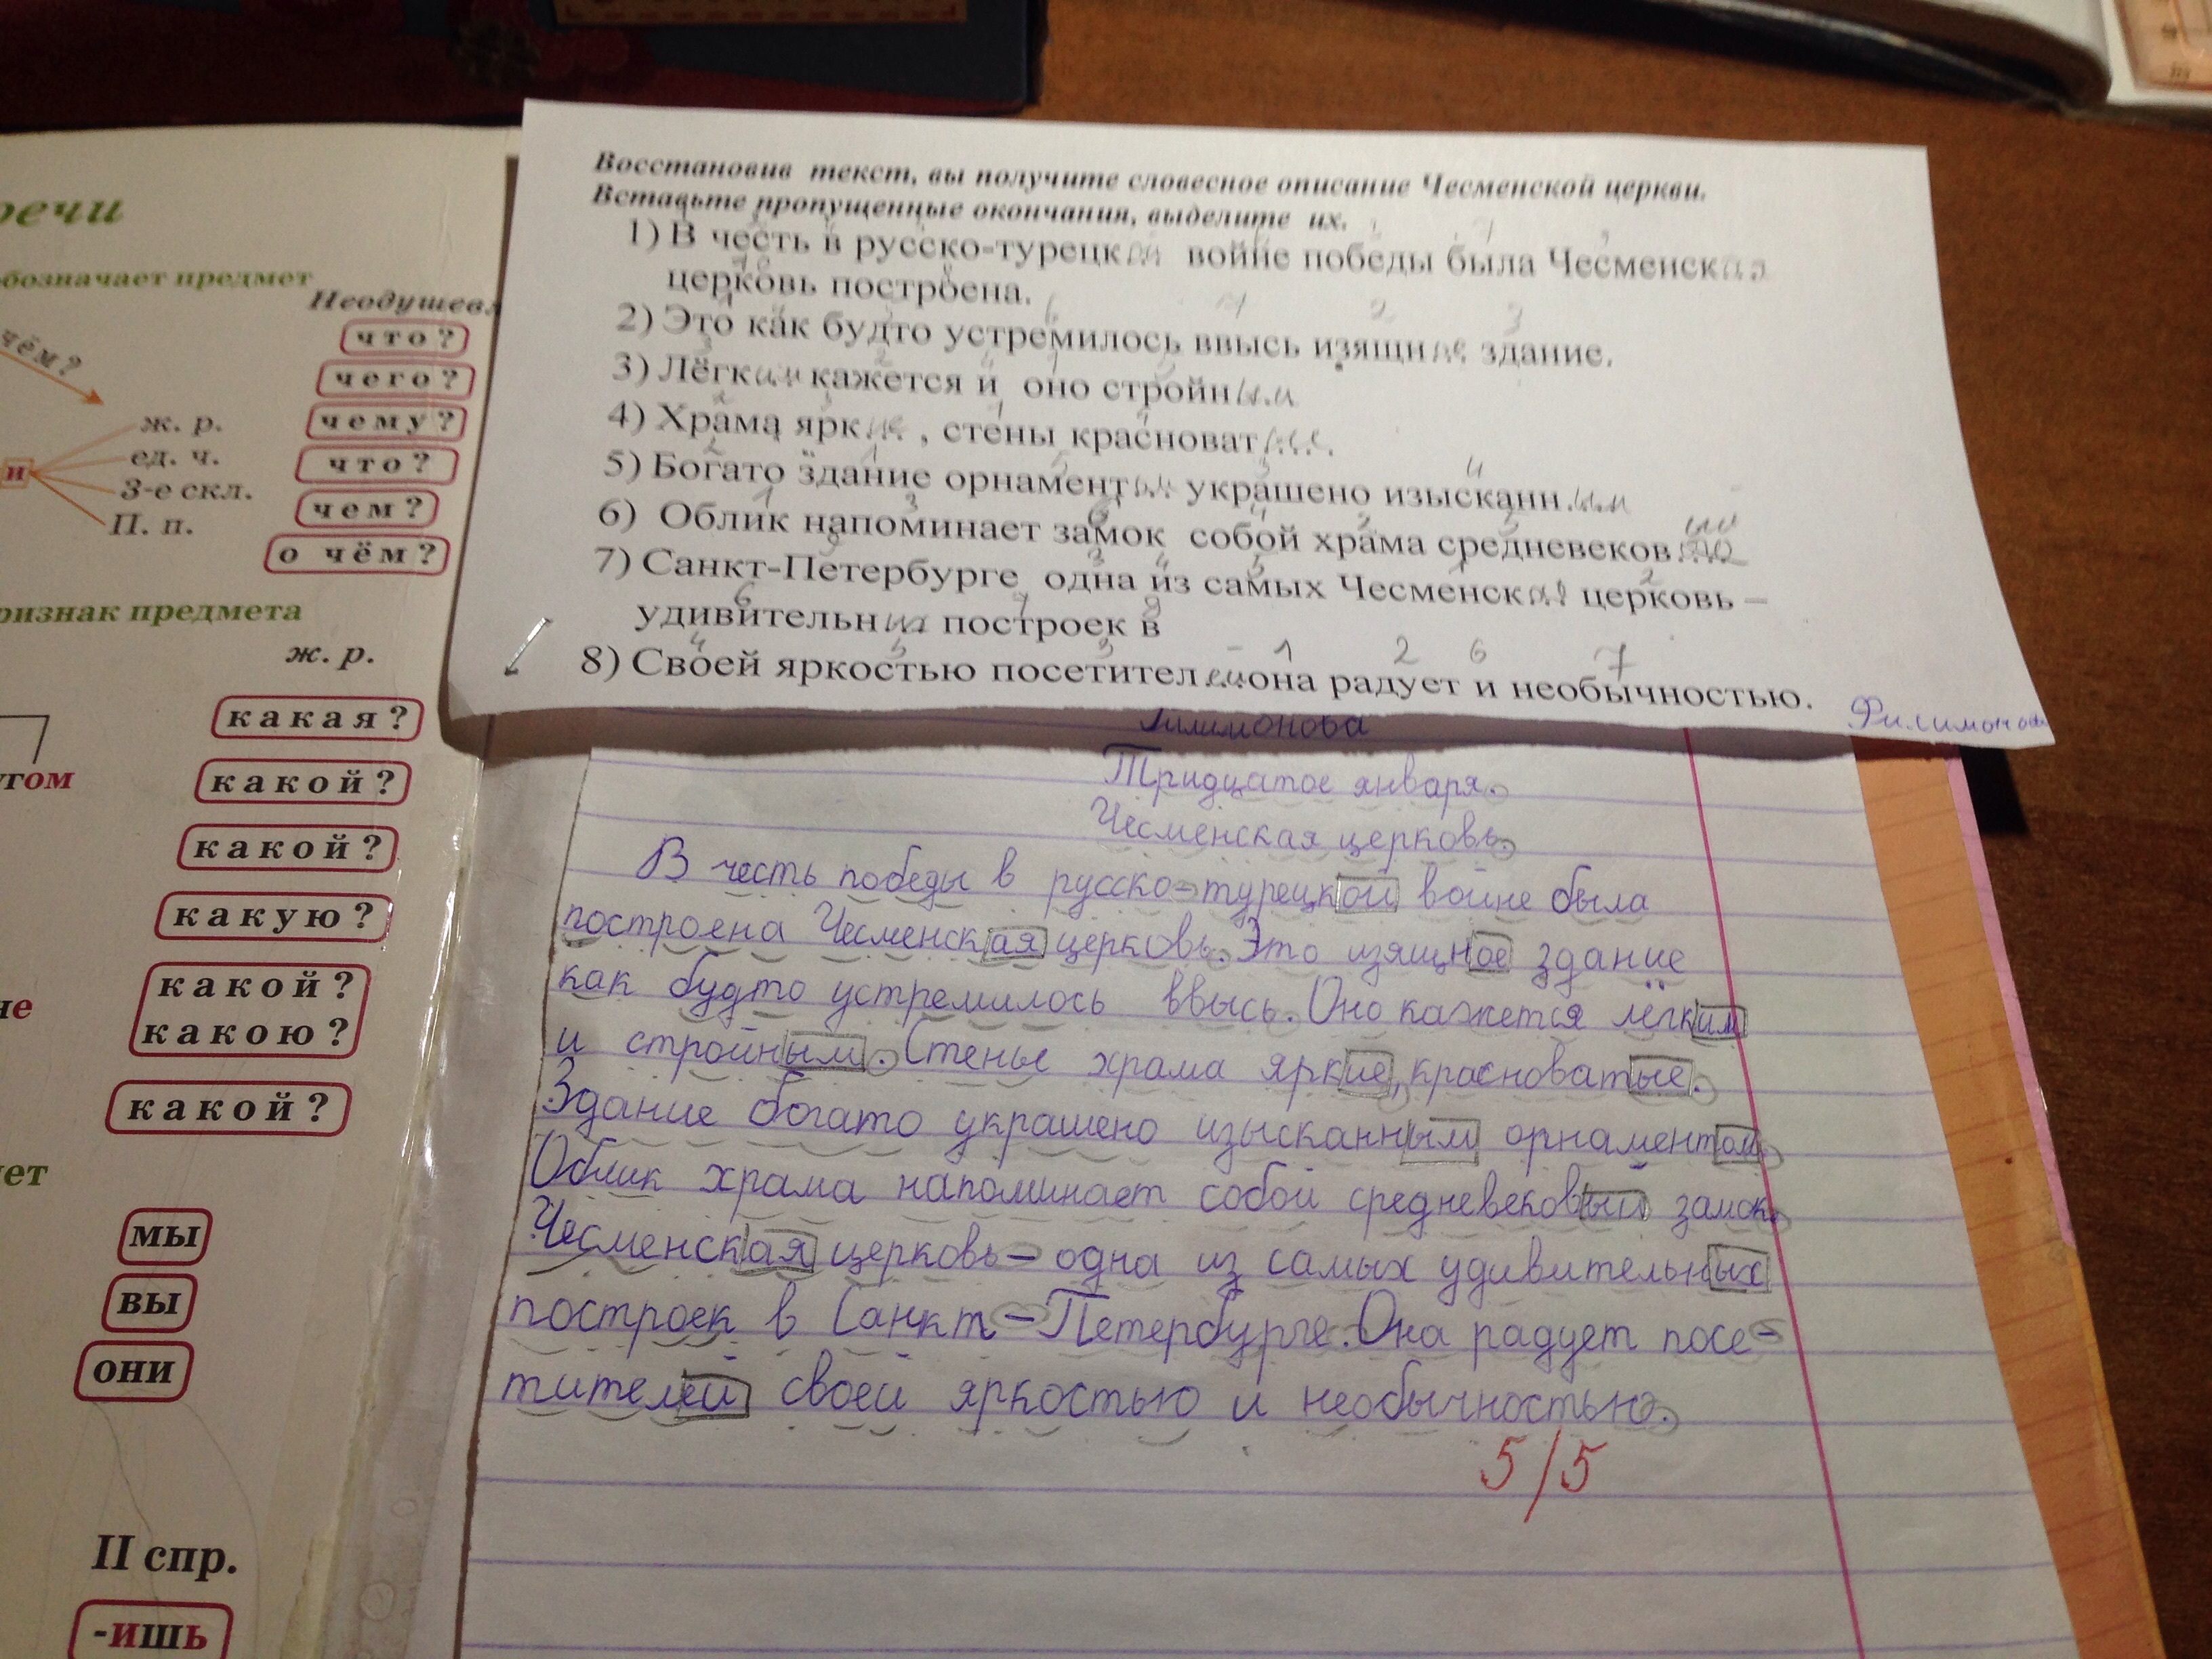 речи
обозначает предмет
Неодушевл
чём?
что?
чего?
чему?
что?
чем?
о чём?
и
ж. р.
ед. ч.
3-е скл.
П. п.
признак предмета
ж. р.
какая?
какой?
какой?
какую?
какой?
какою?
какой?
угом
не
ет
мы
вы
они
II спр.
-ишь
Восстановив текст, вы получите словесное описание Чесменской церкви.
Вставьте пропущенные окончания, выделите их.
1) В честь в русско-турецкой войне победы была Чесменская
церковь построена.
2) Это как будто устремилось ввысь изящное здание.
3) Лёгким кажется и оно стройным
4) Храма яркие, стены красноватые.
5) Богато здание орнаментом украшено изысканным
6) Облик напоминает замок собой храма средневековый
7) Санкт-Петербурге одна из самых Чесменская церковь –
удивительных построек в
8) Своей яркостью посетителей она радует и необычностью.
Филимонова
Филимонова
Тридцатое января.
Чесменская церковь.
В честь победы в русско-турецкой войне была
построена Чесменская церковь. Это изящное здание
как будто устремилось ввысь. Оно кажется лёгким
и стройным. Стены храма яркие, красноватые.
Здание богато украшено изысканным орнаментом.
Облик храма напоминает собой средневековый замок.
Чесменская церковь – одна из самых удивительных
построек в Санкт-Петербурге. Она радует посе-
тителей своей яркостью и необычностью.
5/5